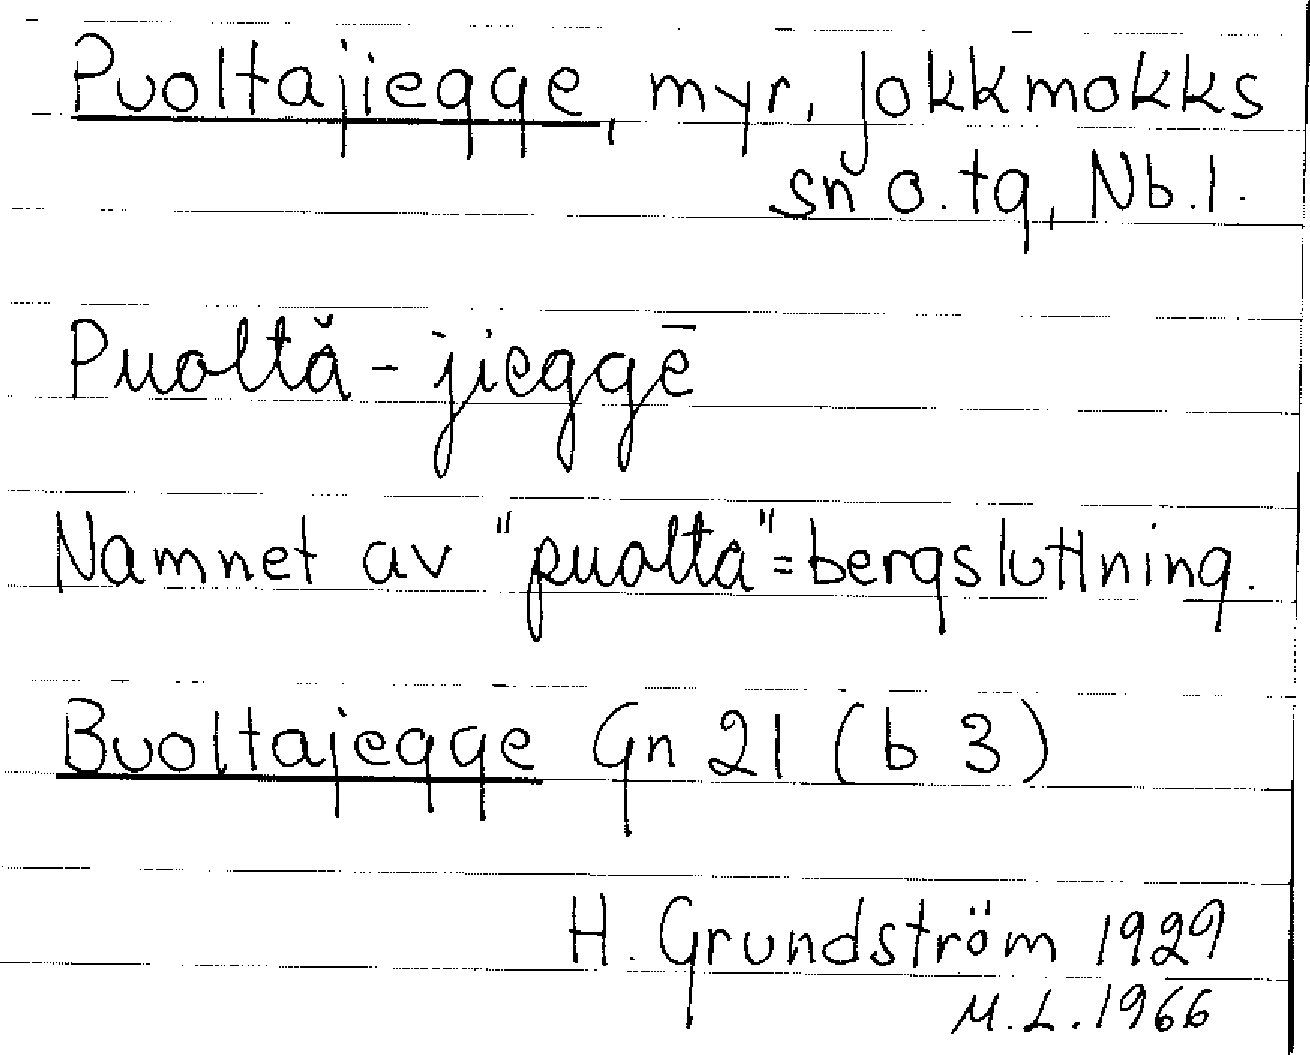 Puoltajiegge, myr, Jokkmokks
sn o. tg, Nb. l.
Puoltǎ - jieggē
Namnet av "puolta" = bergsluttning.
Buoltajegge Gn 21 (b 3)
H. Grundström 1929
M. L. 1966